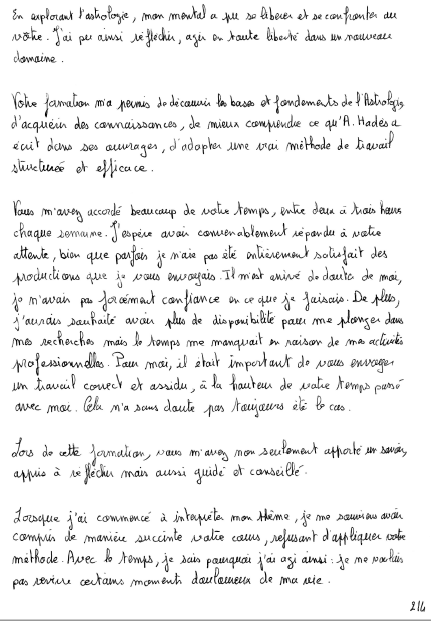 En explorant l'astrologie, mon mental a pu se libérer et se confronter au
vôtre. J'ai pu ainsi réfléchir, agir en toute liberté dans un nouveau
domaine.
Votre formation m'a permis de découvrir les bases et fondements de l'Astrologie,
d'acquérir des connaissances, de mieux comprendre ce qu'A. Hadès a
écrit dans ses ouvrages, d'adopter une vrai méthode de travail
structurée et efficace.
Vous m'avez accordé beaucoup de votre temps, entre deux à trois heures
chaque semaine. J'espère avoir convenablement répondu à votre
attente, bien que parfois je n'aie pas été entièrement satisfait des
productions que je vous envoyais. Il m'est arrivé de douter de moi,
je n'avais pas forcément confiance en ce que je faisais. De plus,
j'aurais souhaité avoir plus de disponibilité pour me plonger dans
mes recherches mais le temps me manquait en raison de mes activités
professionnelles. Pour moi, il était important de vous envoyer
un travail correct et assidu, à la hauteur de votre temps passé
avec moi. Cela n'a sans doute pas toujours été le cas.
Lors de cette formation, vous m'avez non seulement apporté un savoir,
appris à réfléchir mais aussi guidé et conseillé.
Lorsque j'ai commencé à interpréter mon thème, je me souviens avoir
compris de manière succinte votre cours, refusant d'appliquer votre
méthode. Avec le temps, je sais pourquoi j'ai agi ainsi : je ne voulais
pas revivre certains moments douloureux de ma vie.
2/4